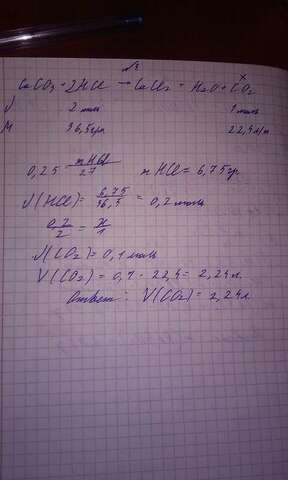 x
CaCO₃ + 2HCl → CaCl₂ + H₂O + CO₂
ν 2 моль 1 моль
M 36,5 гр/м 22,4 л/м
0,25 = mHCl/27 mHCl = 6,75 гр
ν(HCl) = 6,75/36,5 = 0,2 моль
0,2/2 = x/1
ν(CO₂) = 0,1 моль
V(CO₂) = 0,1 · 22,4 = 2,24 л.
Ответ: V(CO₂) = 2,24 л.